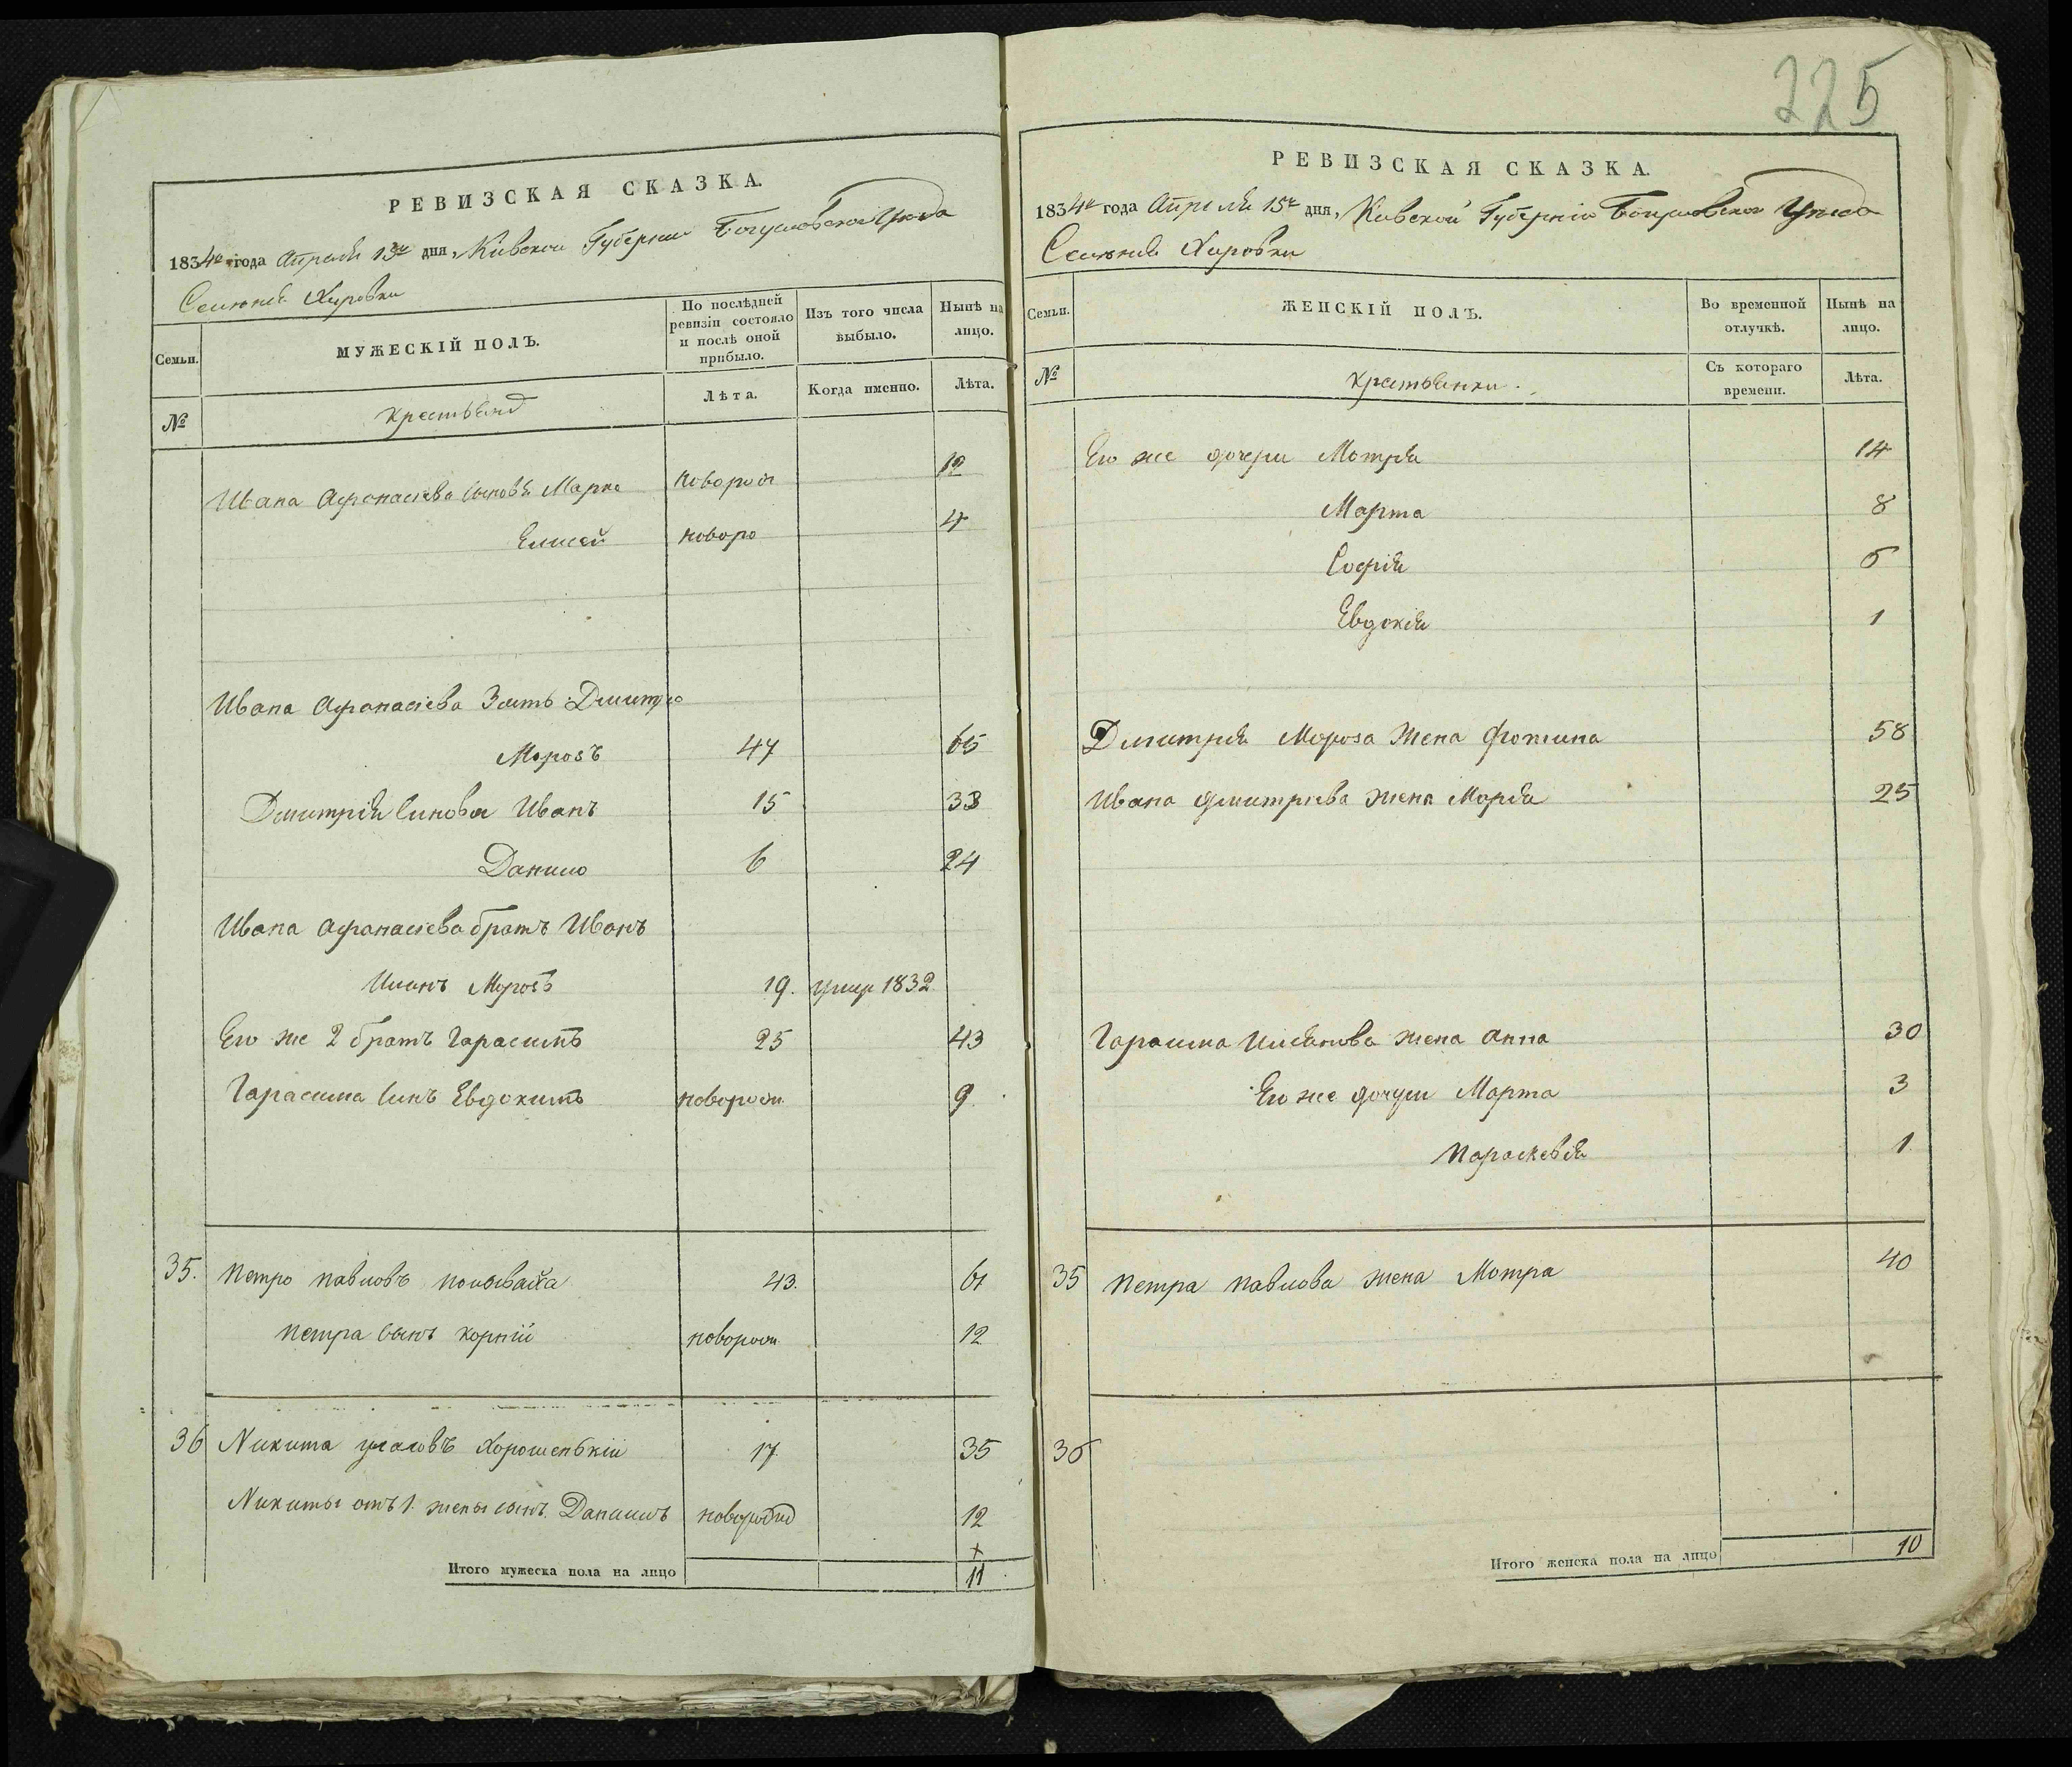 225
РЕВИЗСКАЯ СКАЗКА.
1834го года Апреля 13го дня, Кіевской Губерніи Богуславского Уезда
Селенія Хировки
Семьи.
МУЖЕСКІЙ ПОЛЪ.
По послѣдней ревизіи состояло и послѣ оной прибыло.
Изъ того числа выбыло.
Нынѣ на лицо.
№
крестьянѣ
Лѣта.
Когда именно.
Лѣта.
Ивана Афанасіева сыновя Марко новорож 12
Елисей новоро 4
Ивана Афанасіева Зять Дмитро
Морозъ 47 65
Дмитрія Синовя Иванъ 15 33
Данило 6 24
Ивана Афанасіева братъ Иванъ
Морозъ 19. умер 1832
Его же 2 братъ Гарасимъ 25 43
Гарасима синъ Евдокимъ новорож 9
35. Петро Павловъ 43. 61
Петра сынъ Корній новорож 12
36 Никита Хорошенькій 17 35
Никиты отъ 1. жены сынъ Данилъ 12
Итого мужеска пола на лицо 11
РЕВИЗСКАЯ СКАЗКА.
1834го года Апреля 15го дня, Кіевской Губерніи Богуславского Уезда
Селенія Хировки
Семьи.
ЖЕНСКІЙ ПОЛЪ.
Во временной отлучкѣ.
Нынѣ на лицо.
№
крестьянки.
Съ котораго времени.
Лѣта.
Его же дочери Мотря 14
Марта 8
Софія 6
Евдокія 1
Дмитрія Мороза жена Фотина 58
Ивана Дмитриева жена Марія 25
Гарасима жена Анна 30
Его же дочери Марта 3
Параскевія 1
35 Петра Павлова жена Мотра 40
36
Итого женска пола на лицо 10